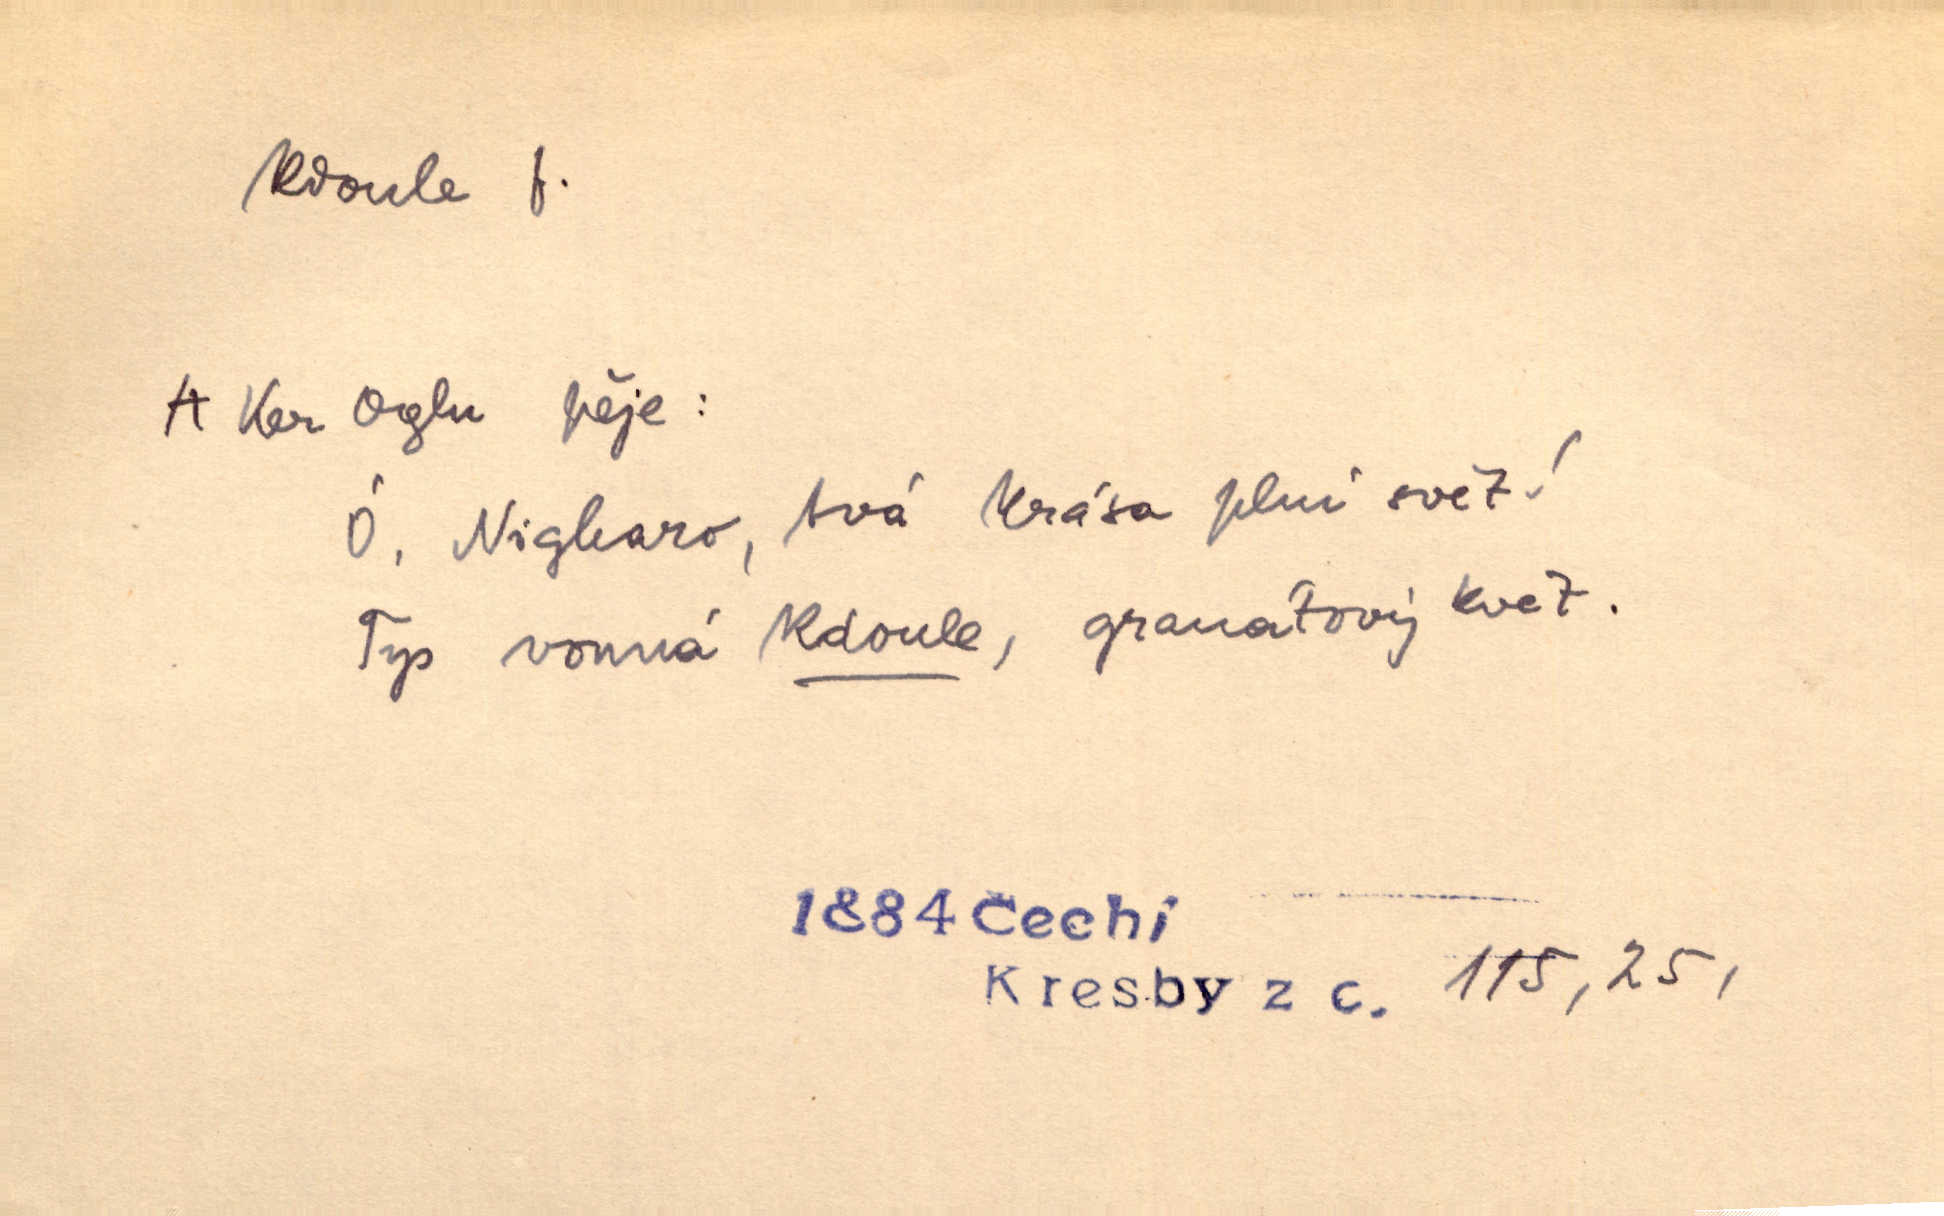 Kdoule f.
A Ker Oglu pěje:
Ó, Nigharo, tvá krása plní svět!
Tys vonná Kdoule, granátový květ.
1884 Čechi
Kresby z c. 115, 25,